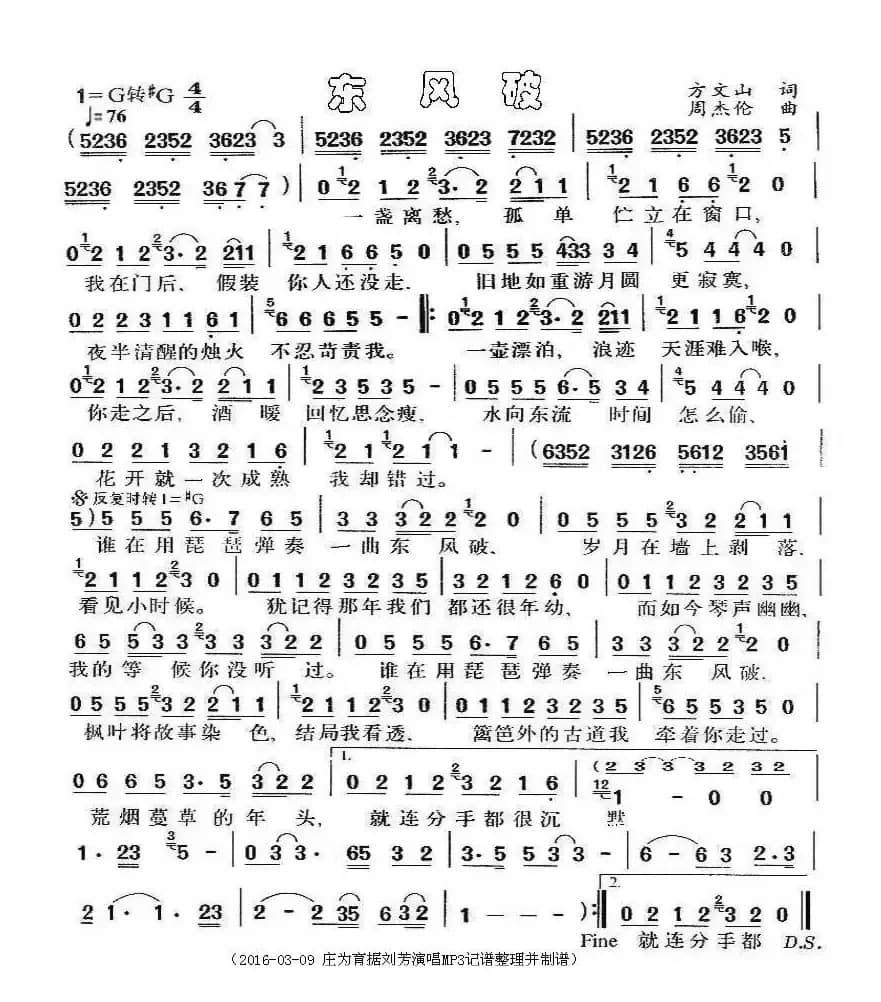 东风破
1=G转#G 4/4
♩=76
方文山 词
周杰伦 曲
(5236 2352 3623 3 | 5236 2352 3623 7232 | 5236 2352 3623 5
5236 2352 36 7 7) | 0 2 1 2 3· 2 2 1 1 | 2 1 6 6 2 0
一盏离愁, 孤单 伫立在窗口,
0 2 1 2 3· 2 211 | 2 1 6 6 5 0 | 0 5 5 5 5 433 3 4 | 5 4 4 4 0
我在门后、 假装 你人还没走. 旧地如重游月圆 更寂寞,
0 2 2 3 1 1 6 1 | 6 6 6 5 5 - ‖: 0 2 1 2 3· 2 211 | 2 1 1 6 2 0
夜半清醒的烛火 不忍苛责我。 一壶漂泊, 浪迹 天涯难入喉,
0 2 1 2 3· 2 2 1 1 | 2 3 5 3 5 - | 0 5 5 5 6· 5 3 4 | 5 4 4 4 0
你走之后, 酒暖 回忆思念瘦, 水向东流 时间 怎么偷、
0 2 2 1 3 2 1 6 | 2 1 2 1 1 - | (6352 3126 5612 3561
花开就一次成熟 我却错过。
反复时转1=#G
5) 5 5 5 6· 7 6 5 | 3 3 3 2 2 2 0 | 0 5 5 5 3 2 2 1 1
谁在用琵琶弹奏 一曲东风破、 岁月在墙上剥落.
2 1 1 2 3 0 | 0 1 1 2 3 2 3 5 | 3 2 1 2 6 0 | 0 1 1 2 3 2 3 5
看见小时候。 犹记得那年我们 都还很年幼、 而如今琴声幽幽,
6 5 5 3 3 3 3 3 2 2 | 0 5 5 5 6· 7 6 5 | 3 3 3 2 2 2 0
我的等 候你没听 过。 谁在用琵琶弹奏 一曲东 风破.
0 5 5 5 3 2 2 1 1 | 2 1 1 2 3 0 | 0 1 1 2 3 2 3 5 | 6 5 5 3 5 0
枫叶将故事染 色, 结局我看透、 篱笆外的古道我 牵着你走过。
1.
0 6 6 5 3· 5 3 2 2 | 0 2 1 2 3 2 1 6 | (2 3 3 3 2 3 2 1 - 0 0
荒烟蔓草的年 头, 就连分手都很沉 默
1· 23 5 - | 0 3 3· 65 3 2 | 3· 5 5 3 3 - | 6 - 6 3 2·3
2 1· 1· 23 | 2 - 2 35 6 32 | 1 - - - ) :‖ 2. 0 2 1 2 3 2 0
Fine 就连分手都 D.S.
(2016-03-09 庄为育据刘芳演唱MP3记谱整理并制谱)